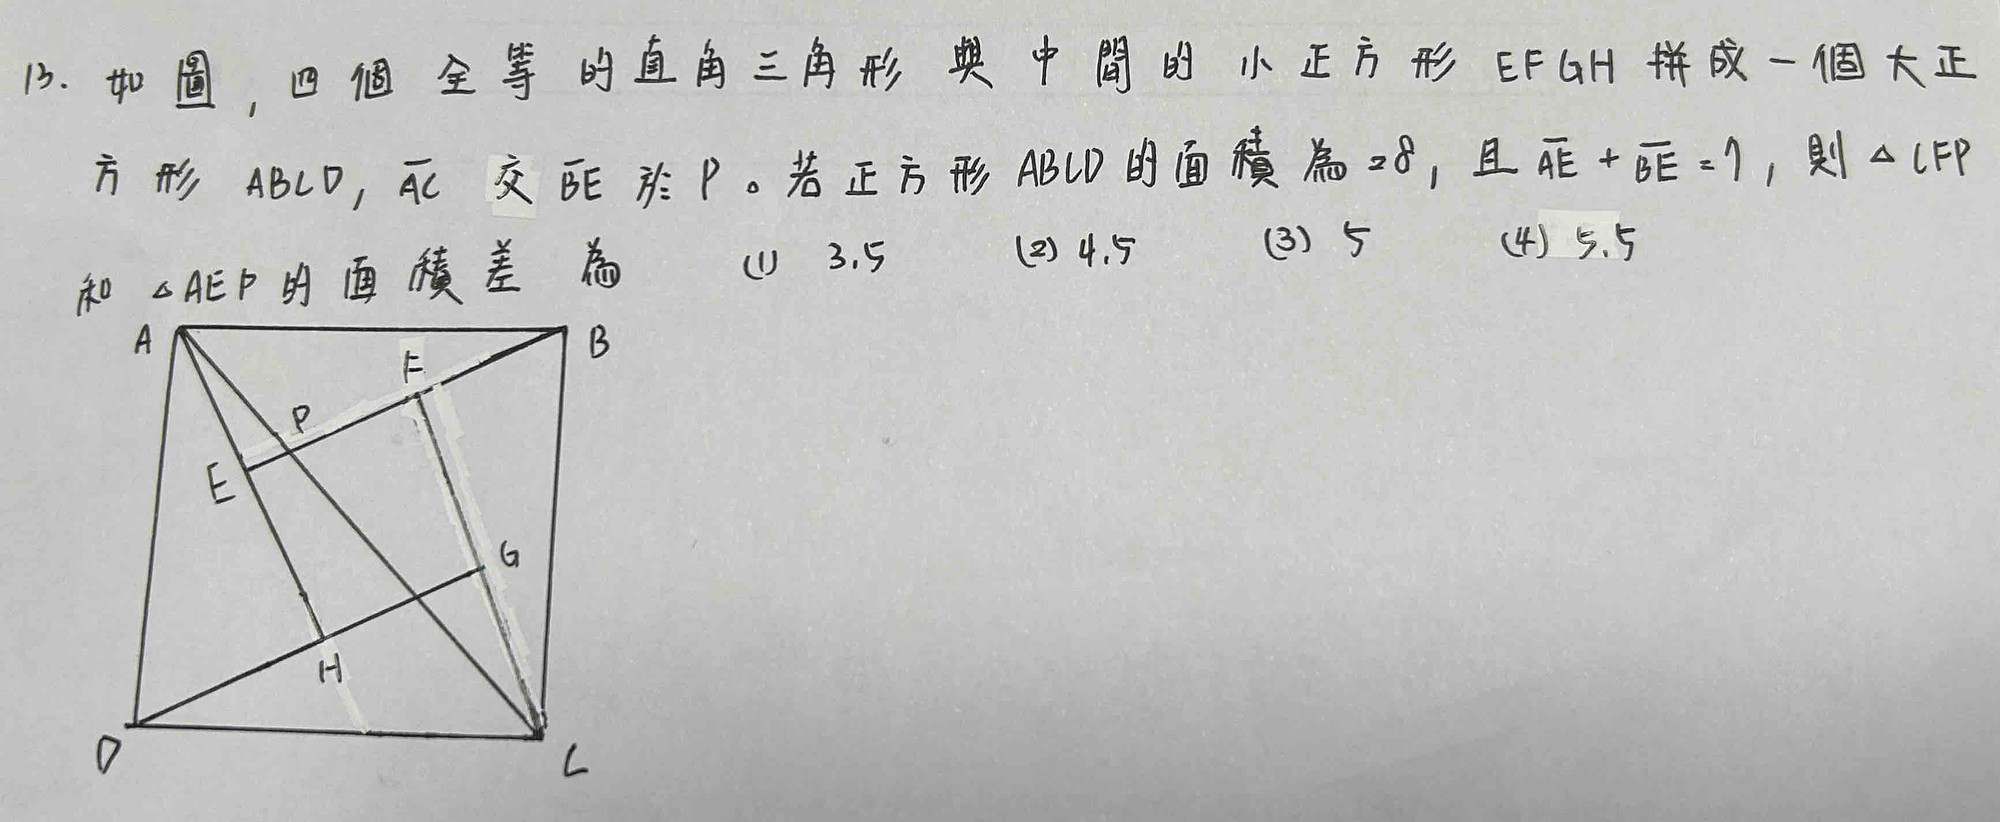 13. 如圖, 四個全等的直角三角形與中間的小正方形 EFGH 拼成一個大正
方形 ABCD, AC 交 BE 於 P。若正方形 ABCD 的面積為 28, 且 AE + BE = 7, 則 △CFP
和 △AEP 的面積差為 (1) 3.5 (2) 4.5 (3) 5 (4) 5.5
A
B
F
P
E
G
H
D
C